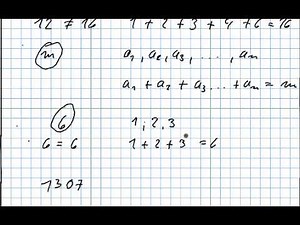 12 ≠ 16 1+2+3+4+6=16
m a₁, a₂, a₃, ..., aₘ
a₁ + a₂ + a₃ ... + aₘ = m
6 1, 2, 3
6 = 6 1+2+3 = 6
1307